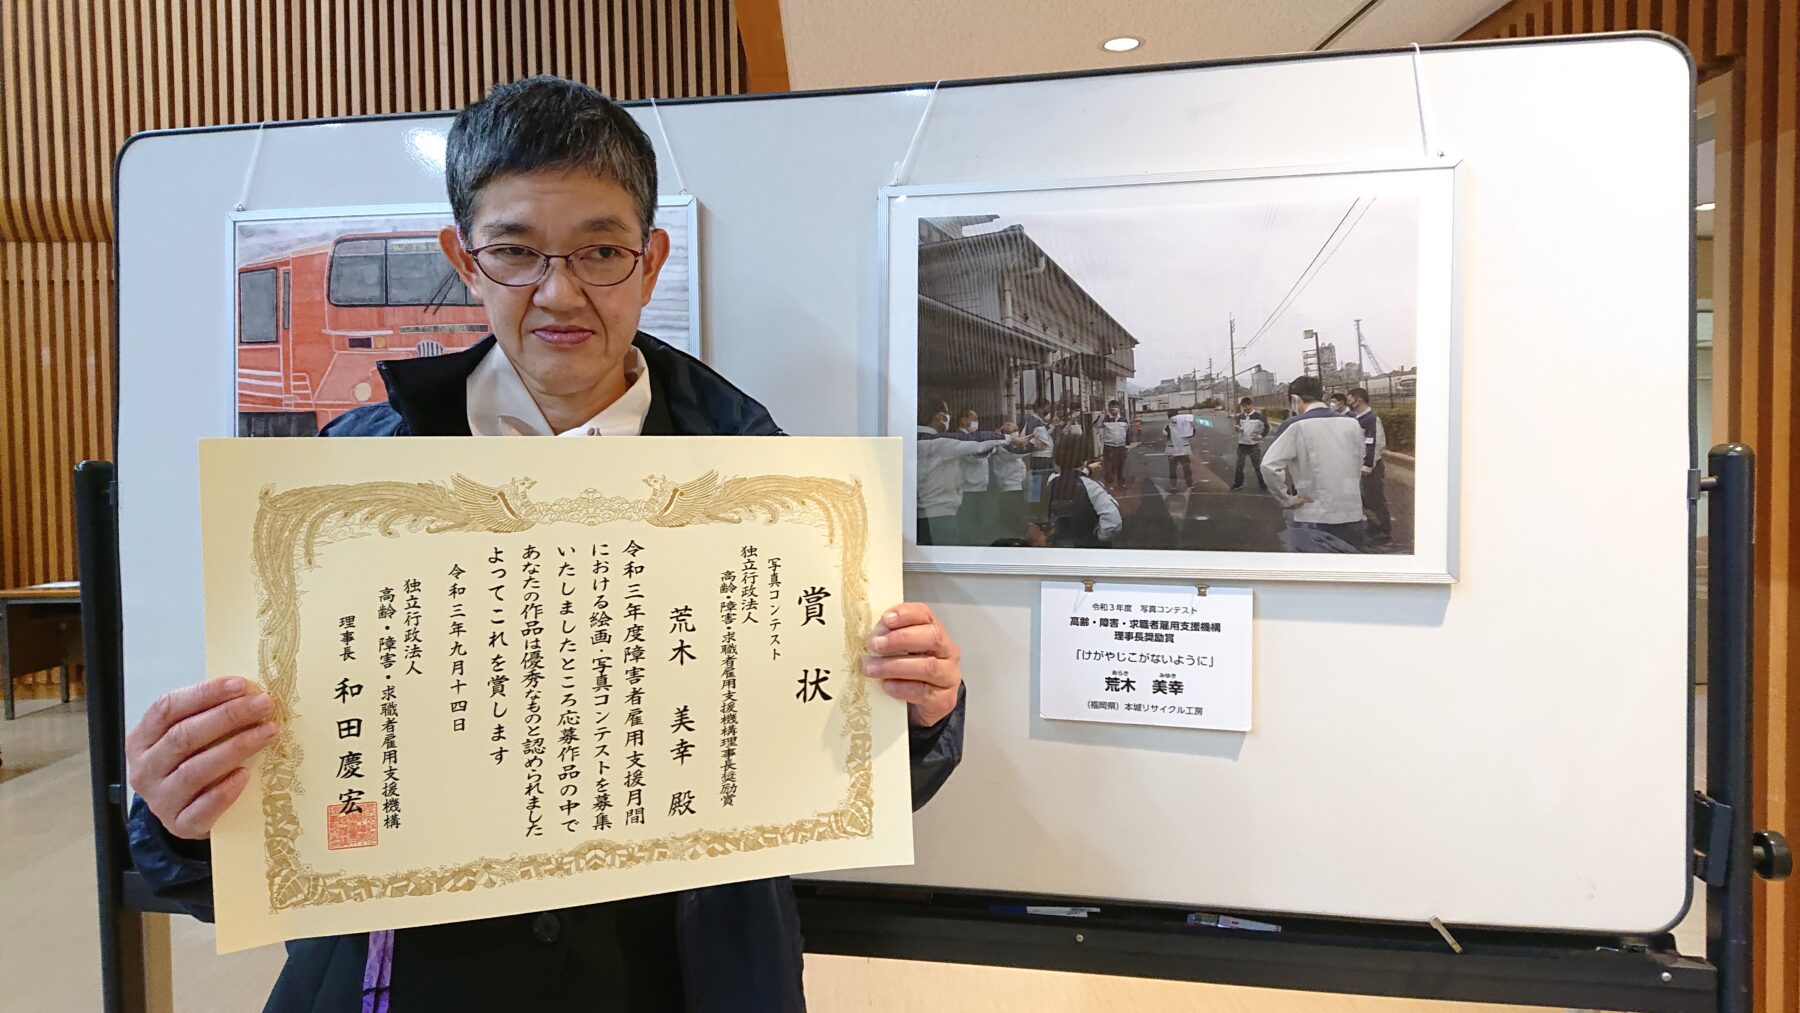 賞状
写真コンテスト
独立行政法人
高齢・障害・求職者雇用支援機構理事長奨励賞
荒木 美幸 殿
令和三年度障害者雇用支援月間
における絵画・写真コンテストを募集
いたしましたところ応募作品の中で
あなたの作品は優秀なものと認められました
よってこれを賞します
令和三年九月十四日
独立行政法人
高齢・障害・求職者雇用支援機構
理事長 和田慶宏
令和3年度 写真コンテスト
高齢・障害・求職者雇用支援機構
理事長奨励賞
「けがやじこがないように」
あらき みゆき
荒木 美幸
（福岡県）本城リサイクル工房